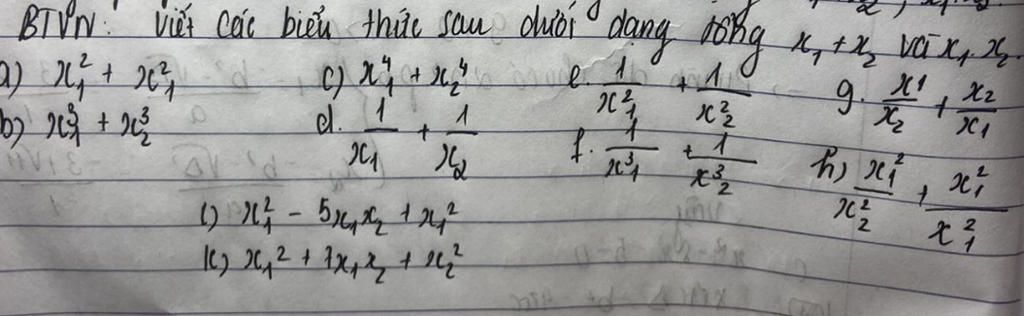 BTVN: Viết các biểu thức sau dưới dạng tổng x₁ + x₂ và x₁.x₂
a) x₁² + x₁²
c) x₁⁴ + x₂⁴
e. 1/x₁² + 1/x₂²
g. x1/x₂ + x₂/x₁
b) x₁³ + x₂³
d. 1/x₁ + 1/x₂
f. 1/x₁³ + 1/x₂³
h) x₁²/x₂² + x₁²/x₁²
i) x₁² - 5x₁x₂ + x₁²
k) x₁² + 7x₁x₂ + x₂²